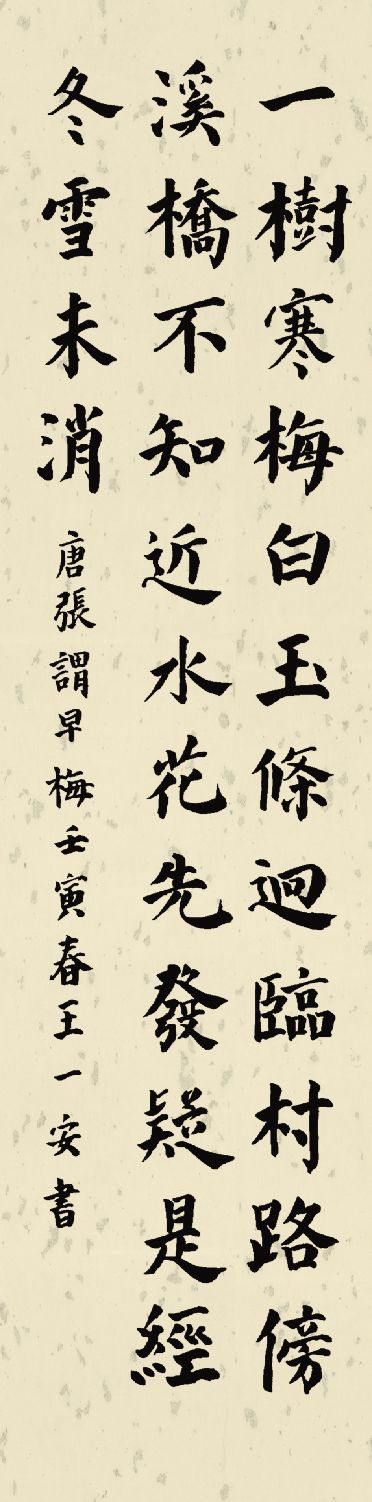 一樹寒梅白玉條迥臨村路傍
溪橋不知近水花先發疑是經
冬雪未消
唐張謂早梅壬寅春王一安書